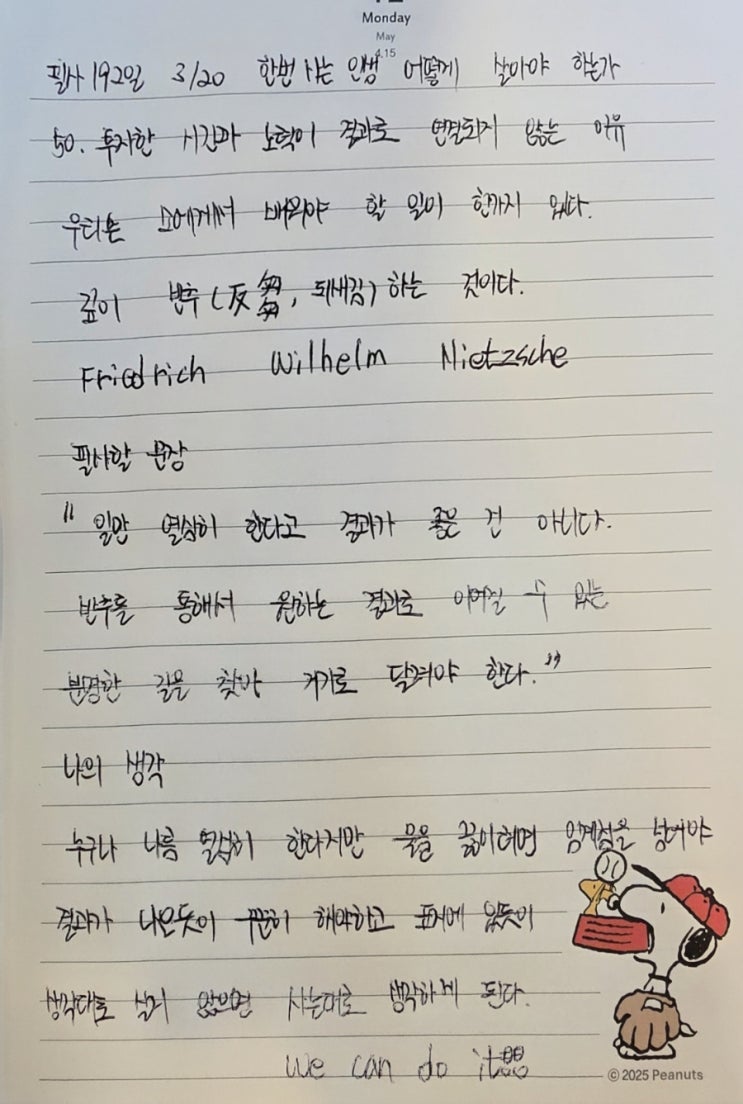 Monday
May
4.15
필사 192일 3/20 한번 사는 인생 어떻게 살아야 하는가
50. 투자한 시간과 노력이 결과로 연결되지 않는 이유
우리는 소에게서 배워야 할 일이 한가지 있다.
깊이 반추(反芻, 되새김)하는 것이다.
Friedrich Wilhelm Nietzsche
필사할 문장
"일만 열심히 한다고 결과가 좋은 건 아니다.
반추를 통해서 원하는 결과로 이어질 수 있는
분명한 길을 찾아 거기로 달려야 한다."
나의 생각
누구나 나름 열심히 한다지만 물을 끓이려면 임계점을 넘어야
결과가 나오듯이 꾸준히 해야하고 표어에 있듯이
생각대로 살지 않으면 사는대로 생각하게 된다.
We can do it
©2025 Peanuts